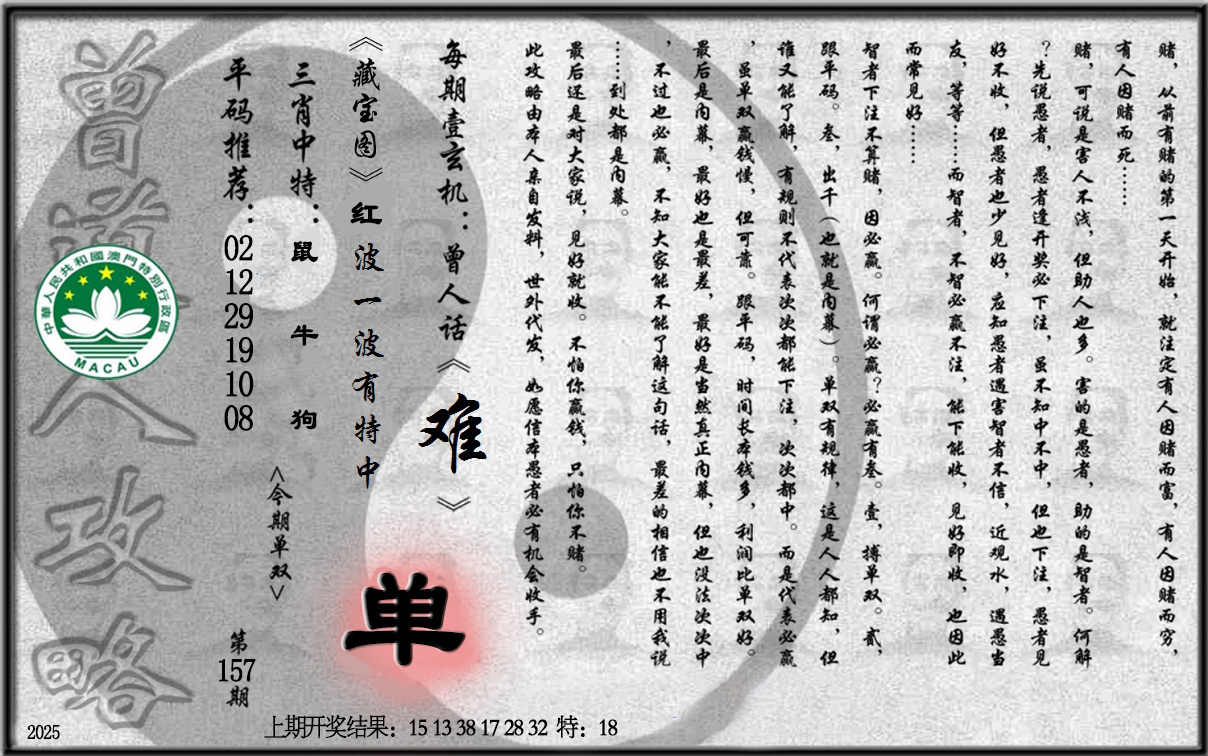 赌，从前有赌的第一天开始，就注定有人因赌而富，有人因赌而穷，
有人因赌而死……
赌，可说是害人不浅，但助人也多。害的是愚者，助的是智者。何解
？先说愚者，愚者逢开奖必下注，虽不知中不中，但也下注，愚者见
好不收，但愚者也少见好，应知愚者遇害智者不信，近观水，遇愚当
友，等等……而智者，不智必赢不注，能下能收，见好即收，也因此
而常见好……
智者下注不算赌，因必赢。何谓必赢？必赢有叁。壹，搏单双。贰，
跟平码。叁，出千（也就是内幕）。单双有规律，这是人人都知，但
谁又能了解，有规则不代表次次都能下注，次次都中。而是代表必赢
，虽单双赢钱慢，但可靠。跟平码，时间长本钱多，利润比单双好。
最后是内幕，最好也是最差，最好是当然真正内幕，但也没法次次中
，不过也必赢，不知大家能不能了解这句话，最差的相信也不用我说
……到处都是内幕。
最后还是对大家说，见好就收。不怕你赢钱，只怕你不赌。
此攻略由本人亲自发料，世外代发，如愿信本愚者必有机会收手。
每期壹玄机：曾人话《难》
《藏宝图》红波一波有特中
三肖中特：鼠牛狗
平码推荐：02 12 29 19 10 08
<今期单双>
单
第157期
曾道人攻略
中華人民共和國澳門特別行政區
MACAU
2025
上期开奖结果：15 13 38 17 28 32 特：18